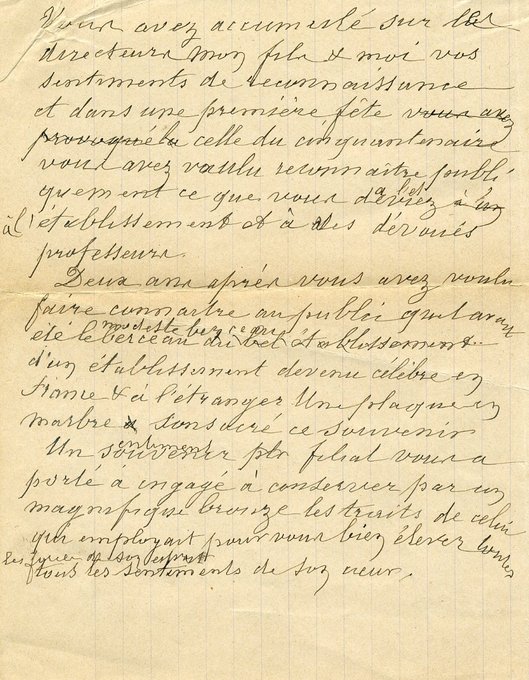 Vous avez accumulé sur les
directeurs mon fils & moi vos
sentiments de reconnaissance
et dans une première fête vous avez
provoqué la celle du cinquantenaire
vous avez voulu reconnaître publi
quement ce que vous deviez à un
à l'établissement et à des dévoués
professeurs.
Deux ans après vous avez voulu
faire connaître au public quel avait
modeste berceau
été le berceau du bel établissement
d'un établissement devenu célèbre en
France & à l'étranger Une plaque en
marbre & consacré ce souvenir
sentiment
Un souvenir plr filial vous a
porté à engagé à conserver par un
magnifique bronze les traits de celui
qui employait pour vous bien élever toutes
les de son esprit
tous les sentiments de son cœur.